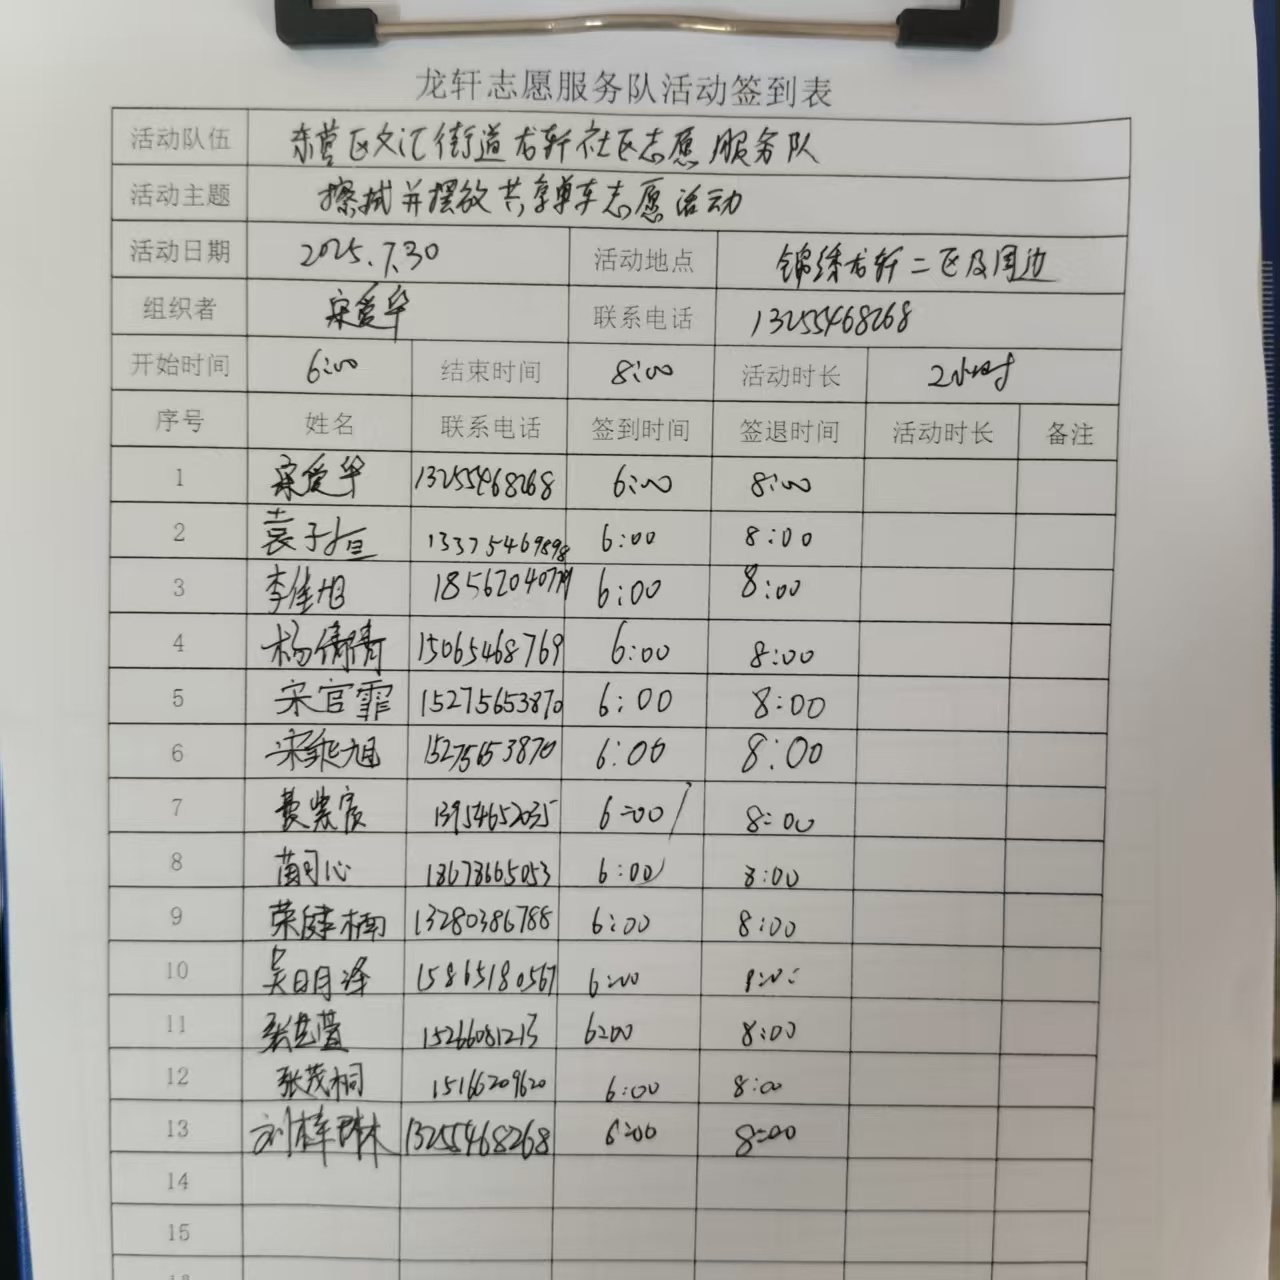 龙轩志愿服务队活动签到表
活动队伍 东营区文汇街道龙轩社区志愿服务队
活动主题 擦拭并摆放共享单车志愿活动
活动日期 2025.7.30 活动地点 锦绣龙轩二区及周边
组织者 宋爱华 联系电话 13255468268
开始时间 6:00 结束时间 8:00 活动时长 2小时
序号 姓名 联系电话 签到时间 签退时间 活动时长 备注
1 宋爱华 13255468268 6:00 8:00
2 袁子恒 13375469898 6:00 8:00
3 李佳旭 6:00 8:00
4 杨倩倩 15065468769 6:00 8:00
5 宋官霏 15275653870 6:00 8:00
6 15275653870 6:00 8:00
7 13954652035 6:00 8:00
8 18678665053 6:00 8:00
9 荣健楠 13280386788 6:00 8:00
10 吴明泽 15865180567 6:00
11 15266081213 6:00 8:00
12 张茂桐 15166209620 6:00 8:00
13 刘梓琳 13255468268 6:00 8:00
14
15